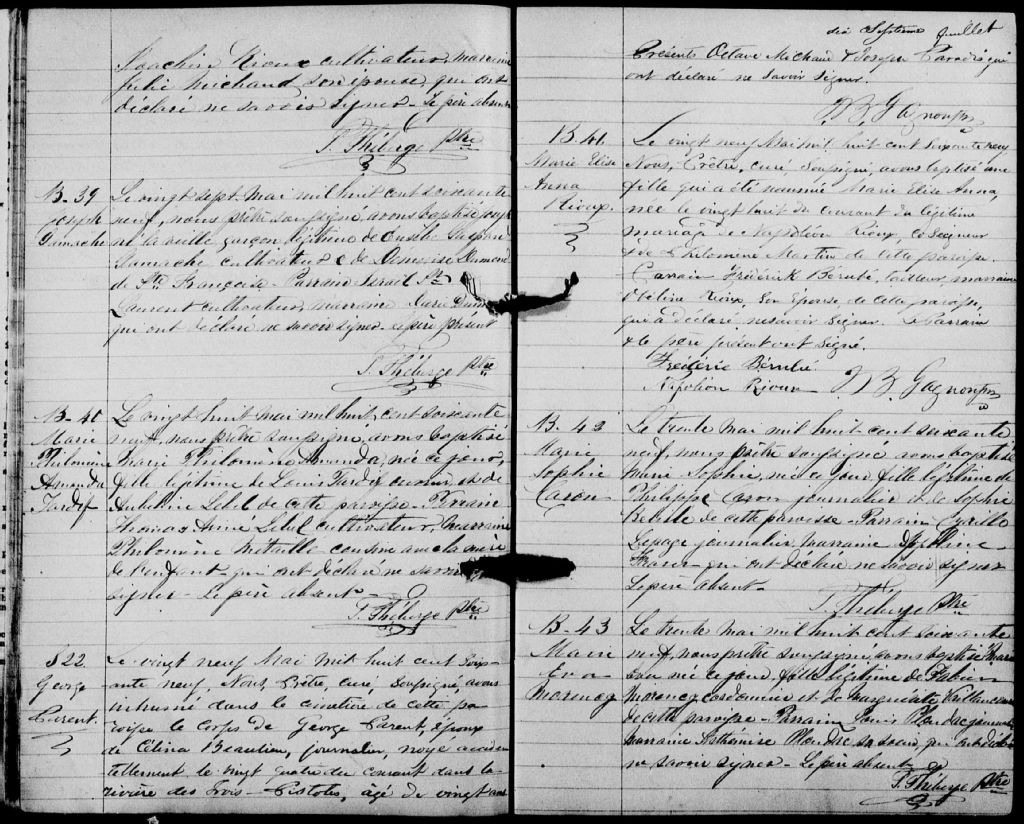 Joachim Rioux cultivateur, marraine
Julie Michaud son épouse, qui ont
déclaré ne savoir signer - Le père absent
T. Théberge Ptre
B-39
Joseph
Gamache
Le vingt sept mai mil huit cent soixante
neuf, nous prêtre soussigné, avons baptisé Joseph
né la veille garçon légitime de Eusèbe
Gamache cultivateur & de Demerise Dumond
de Ste Françoise - Parrain Israël St
Laurent cultivateur, marraine
qui ont déclaré ne savoir signer le père présent
T. Théberge Ptre
B-40
Marie
Philomène
Amanda
Tardif
Le vingt huit mai mil huit cent soixante
neuf, nous prêtre soussigné, avons baptisé
Marie Philomène Amanda, née ce jour,
fille légitime de Louis Tardif et de
Lebel de cette paroisse - Parrain
Thomas Lebel cultivateur, marraine
Philomène comme aussi la mère
de l'enfant qui ont déclaré ne savoir
signer - Le père absent -
T. Théberge Ptre
S 22
George
Parent.
Le vingt neuf Mai mil huit cent soix-
ante neuf, Nous, Prêtre, curé, soussigné, avons
inhumé dans le cimetière de cette pa
roisse le corps de George Parent, époux
de Célina Beaulieu, journalier, noyé acciden
tellement le vingt quatre du courant dans la
rivière des Trois-Pistoles, âgé de vingt
dix septième Juillet
Présents Octave Michaud & Joseph Paradis qui
ont déclaré ne savoir signer.
J. B. Gagnon Ptre
B. 41
Marie Elise
Anna
Rioux.
Le vingt neuf Mai mil huit cent soixante neuf
Nous, Prêtre, curé, soussigné, avons baptisé une
fille qui a été nommée Marie Elise Anna,
née le vingt huit du courant du légitime
mariage de Napoléon Rioux, Co Seigneur
& de Philomène Martin de cette paroisse.
Parrain Frédérick Bérubé, tailleur, marraine
Rioux, son épouse, de cette paroisse,
qui a déclaré ne savoir signer. Le Parrain
& le père présent ont signé.
Frédéric Bérubé
Napoléon Rioux J. B. Gagnon Ptre
B-42
Marie
Sophie
Caron
Le trente mai mil huit cent soixante
neuf, nous prêtre soussigné avons baptisé
Marie Sophie, née ce jour, fille légitime de
Philippe Caron journalier et de Sophie
de cette paroisse - Parrain Cyrille
Lepage journalier, marraine
qui ont déclaré ne savoir signer
Le père absent -
T. Théberge Ptre
B-43
Marie
Eva
Morency
Le trente mai mil huit cent soixante
neuf, nous prêtre soussigné, avons baptisé Marie
Eva née ce jour, fille légitime de Fabien
Morency cordonnier et de Marguerite
de cette paroisse - Parrain Louis
marraine sa soeur, qui ont déclaré
ne savoir signer - Le père absent
T. Théberge Ptre